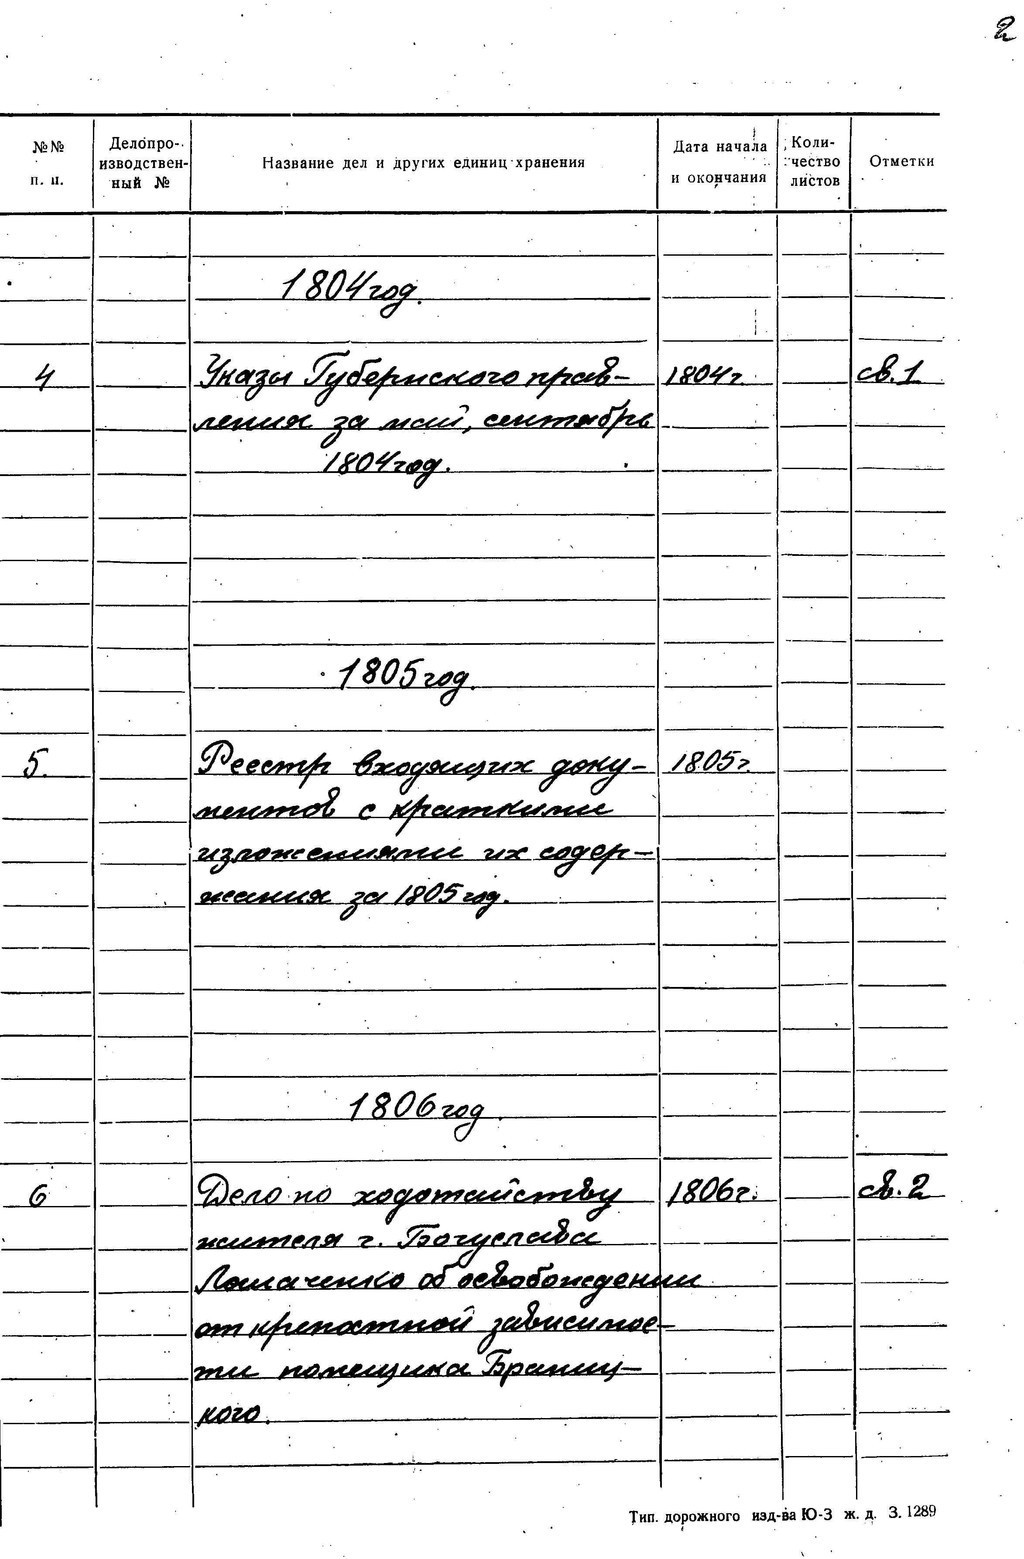 2
№№ п. п. Делопро- изводствен- ный № Название дел и других единиц хранения Дата начала и окончания Коли- чество листов Отметки
1804 год.
4 Указы Губернского прав- 1804 г. св. 1
ления за май, сентябрь
1804 год.
1805 год.
5. Реестр входящих доку- 1805 г.
ментов с краткими
изложениями их содер-
жания за 1805 год.
1806 год.
6 Дело по ходатайству 1806 г. св. 2
жителя г. Богуслава
об освобождении
от крепостной зависимос-
ти помещика Браниц-
кого.
Тип. дорожного изд-ва Ю-З ж. д. З. 1289